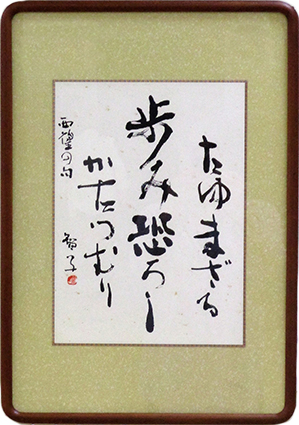 たゆまざる
歩み恐ろし
かたつむり
西望の句